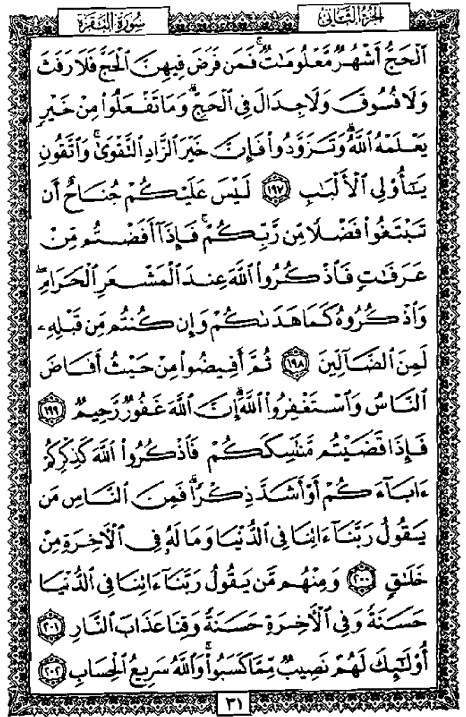 سورة البقرة
الجزء الثاني
ٱلْحَجُّ أَشْهُرٌ مَّعْلُومَٰتٌ ۚ فَمَن فَرَضَ فِيهِنَّ ٱلْحَجَّ فَلَا رَفَثَ
وَلَا فُسُوقَ وَلَا جِدَالَ فِى ٱلْحَجِّ ۗ وَمَا تَفْعَلُوا۟ مِنْ خَيْرٍ
يَعْلَمْهُ ٱللَّهُ ۗ وَتَزَوَّدُوا۟ فَإِنَّ خَيْرَ ٱلزَّادِ ٱلتَّقْوَىٰ ۚ وَٱتَّقُونِ
يَٰٓأُو۟لِى ٱلْأَلْبَٰبِ ١٩٧ لَيْسَ عَلَيْكُمْ جُنَاحٌ أَن
تَبْتَغُوا۟ فَضْلًا مِّن رَّبِّكُمْ ۚ فَإِذَآ أَفَضْتُم مِّنْ
عَرَفَٰتٍ فَٱذْكُرُوا۟ ٱللَّهَ عِندَ ٱلْمَشْعَرِ ٱلْحَرَامِ ۖ
وَٱذْكُرُوهُ كَمَا هَدَىٰكُمْ وَإِن كُنتُم مِّن قَبْلِهِۦ
لَمِنَ ٱلضَّآلِّينَ ١٩٨ ثُمَّ أَفِيضُوا۟ مِنْ حَيْثُ أَفَاضَ
ٱلنَّاسُ وَٱسْتَغْفِرُوا۟ ٱللَّهَ ۚ إِنَّ ٱللَّهَ غَفُورٌ رَّحِيمٌ ١٩٩
فَإِذَا قَضَيْتُم مَّنَٰسِكَكُمْ فَٱذْكُرُوا۟ ٱللَّهَ كَذِكْرِكُمْ
ءَابَآءَكُمْ أَوْ أَشَدَّ ذِكْرًا ۗ فَمِنَ ٱلنَّاسِ مَن
يَقُولُ رَبَّنَآ ءَاتِنَا فِى ٱلدُّنْيَا وَمَا لَهُۥ فِى ٱلْأَخِرَةِ مِنْ
خَلَٰقٍ ٢٠٠ وَمِنْهُم مَّن يَقُولُ رَبَّنَآ ءَاتِنَا فِى ٱلدُّنْيَا
حَسَنَةً وَفِى ٱلْأَخِرَةِ حَسَنَةً وَقِنَا عَذَابَ ٱلنَّارِ ٢٠١
أُو۟لَٰٓئِكَ لَهُمْ نَصِيبٌ مِّمَّا كَسَبُوا۟ ۚ وَٱللَّهُ سَرِيعُ ٱلْحِسَابِ ٢٠٢
٣١